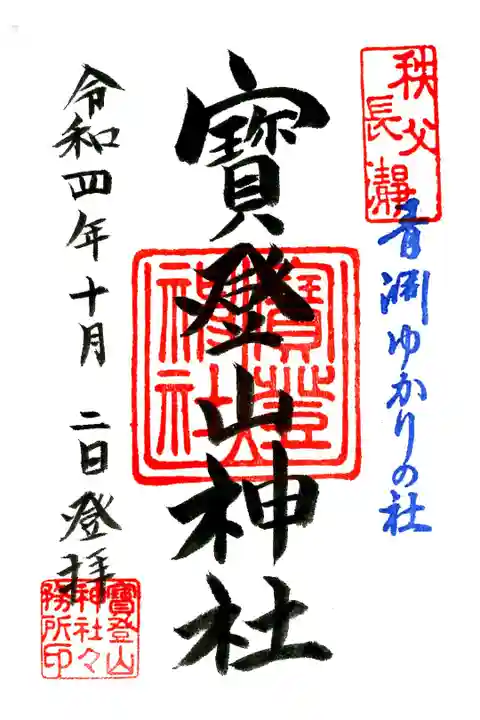 秩父
長瀞
青淵ゆかりの社
寳登山神社
寳登
神社
令和四年十月二日登拝
寳登山
神社々
務所印